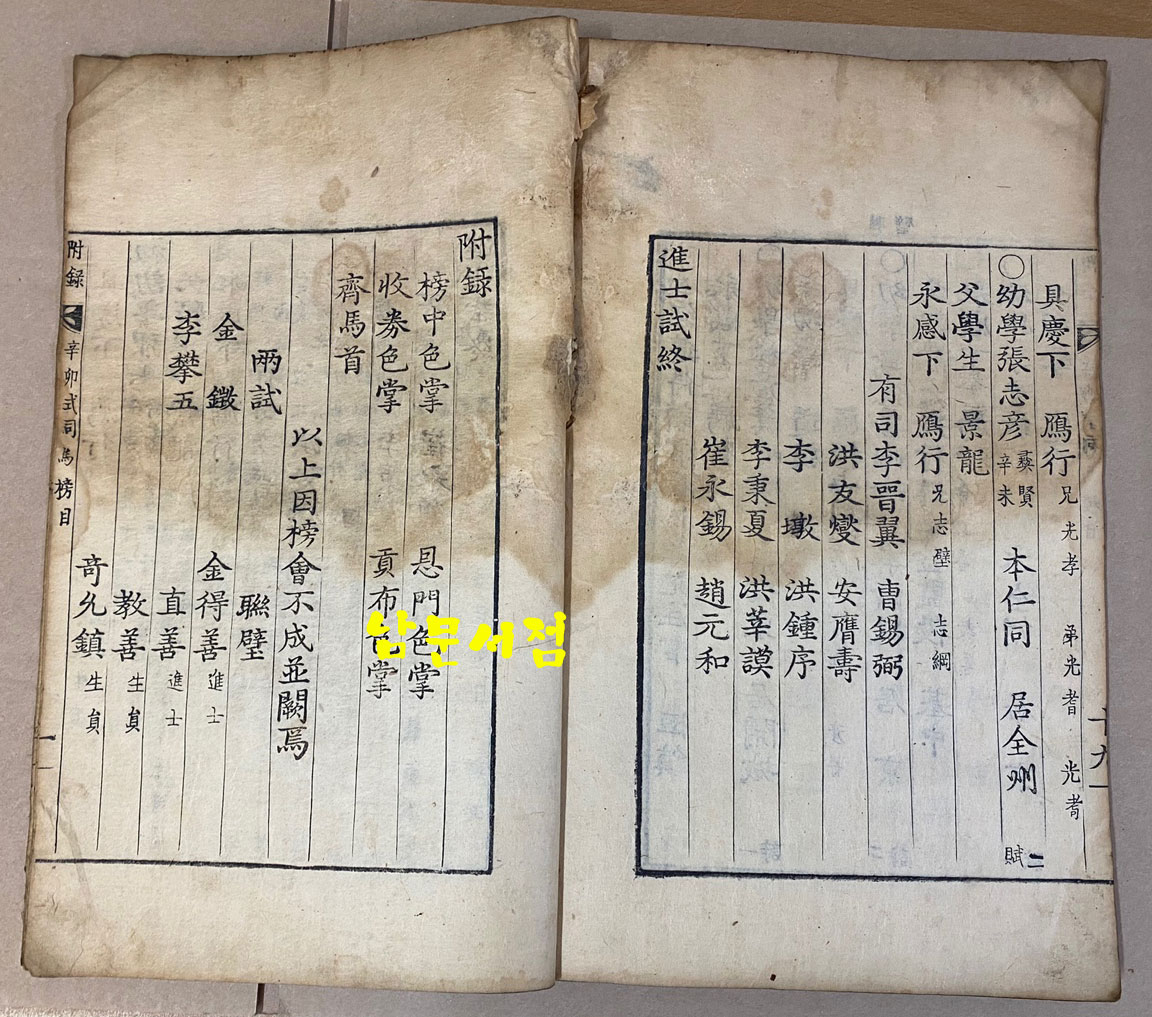 具慶下 鴈行 兄光孝 弟光耆 光耈
〇幼學張志彦 彛賢 辛未 本仁同 居全州 賦二
父學生 景龍
永感下 鴈行 兄志璧 志綱
有司李晋翼 曹錫弼
洪友燮 安膺壽
李墩 洪鍾序
李秉夏 洪華謨
崔永錫 趙元和
進士試終
十九
附録
榜中色掌 曷門色掌
收券色掌 貢布色掌
齊馬首
以上因榜會不成並闕焉
兩試 聯璧
金鐓 金得善 進士
李攀五 直善 進士
教善 生員
奇允鎮 生員
附録 辛卯式司馬榜目 一
남문서점